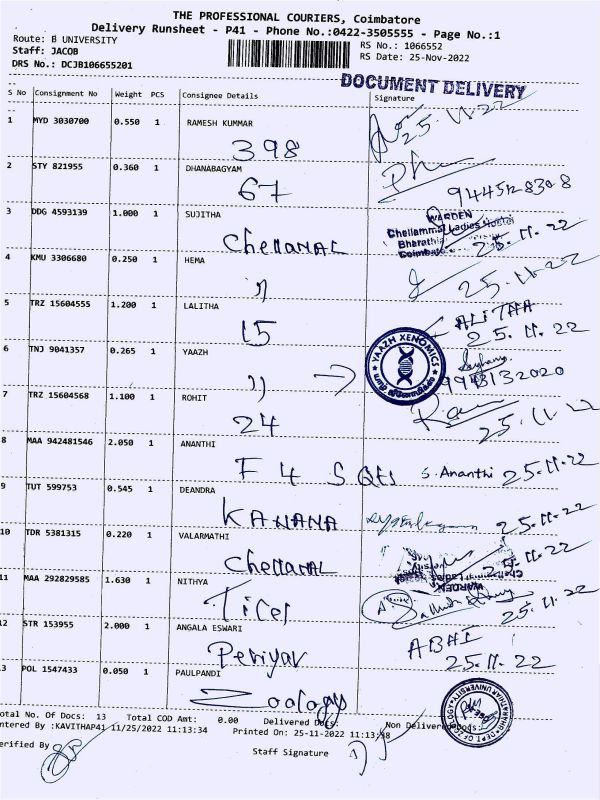 THE PROFESSIONAL COURIERS, Coimbatore
Delivery Runsheet - P41 - Phone No.:0422-3505555 - Page No.:1
Route: B UNIVERSITY
RS No.: 1066552
Staff: JACOB
RS Date: 25-Nov-2022
DRS No.: DCJB106655201
DOCUMENT DELIVERY
S No Consignment No Weight PCS Consignee Details Signature
1 MYD 3030700 0.550 1 RAMESH KUMMAR 25.11.22
398
2 STY 821955 0.360 1 DHANABAGYAM
67
3 DDG 4593139 1.000 1 SUJITHA
WARDEN
Chellammal Ladies Hostel
Bharathiar
Coimbatore
Chellamal 25.11.22
4 KMU 3306680 0.250 1 HEMA
" 25.11.22
5 TRZ 15604555 1.200 1 LALITHA ALITHA
15 25.11.22
6 TNJ 9041357 0.265 1 YAAZH
YAAZH XENOMICS
"
7 TRZ 15604568 1.100 1 ROHIT
24 25.11.22
8 MAA 942481546 2.050 1 ANANTHI
F 4 S Qts S. Ananthi 25.11.22
9 TUT 599753 0.545 1 DEANDRA
KANANA 25.11.22
10 TDR 5381315 0.220 1 VALARMATHI
Chellamal 25.11.22
WARDEN
11 MAA 292829585 1.630 1 NITHYA
25.11.22
12 STR 153955 2.000 1 ANGALA ESWARI
Periyar ABHI
25.11.22
13 POL 1547433 0.050 1 PAULPANDI
Zoology
DEPT OF ZOOLOGY
Total No. Of Docs: 13 Total COD Amt: 0.00 Delivered Docs: Non Delivered Docs:
Entered By :KAVITHAP41 11/25/2022 11:13:34 Printed On: 25-11-2022 11:13:38
Verified By
Staff Signature